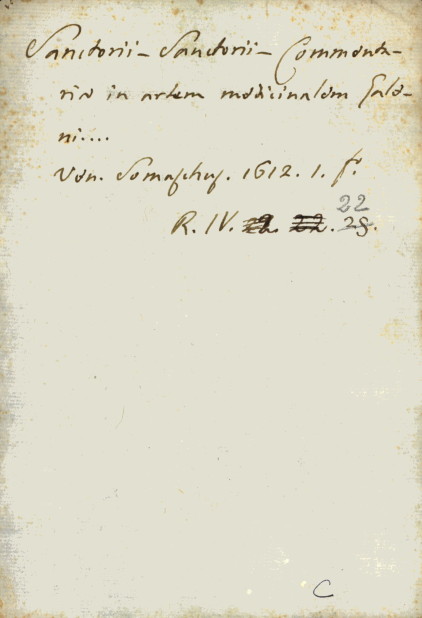 Sanctorii – Sanctorii – Commenta-
ria in artem medicinalem Gale-
ni....
Ven. Somaschus. 1612. 1. f.
22
R. IV. 29.
C